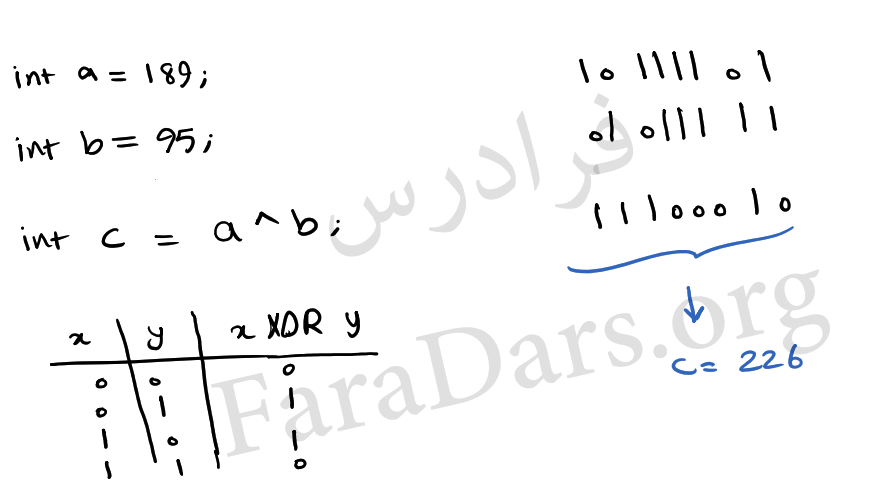 int a = 189;
int b = 95;
int c = a ^ b;
x y x XOR y
0 0 0
0 1 1
1 0 1
1 1 0
10 1111 01
01 0111 11
11100010
c = 226
فرادرس
FaraDars.org